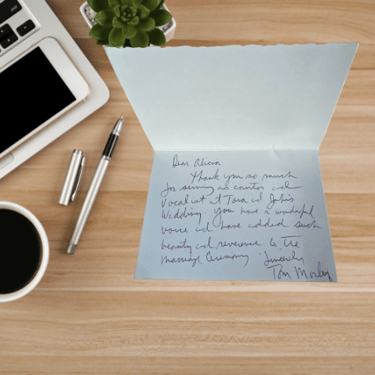 Dear Alison
Thank you so much
for serving as cantor and
vocalist at Tara and John's
Wedding. You have a wonderful
voice and have added such
beauty and reverence to the
marriage ceremony. Sincerely
Tom